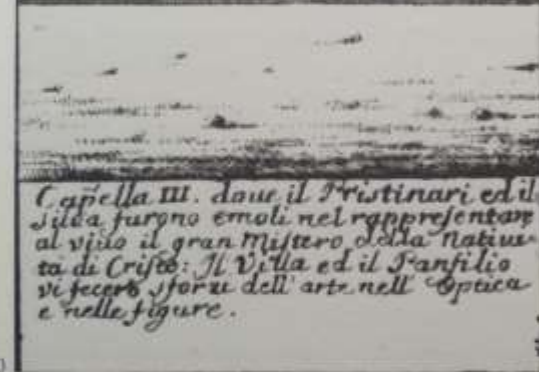 Capella III. doue il Pristinari ed il
Silua furono emoli nel rappresentare
al viuo il gran Mistero della Natiui-
tà di Cristo: Il Villa ed il Panfilio
vi fecero sforzi dell'arte nell'Optica
e nelle figure.